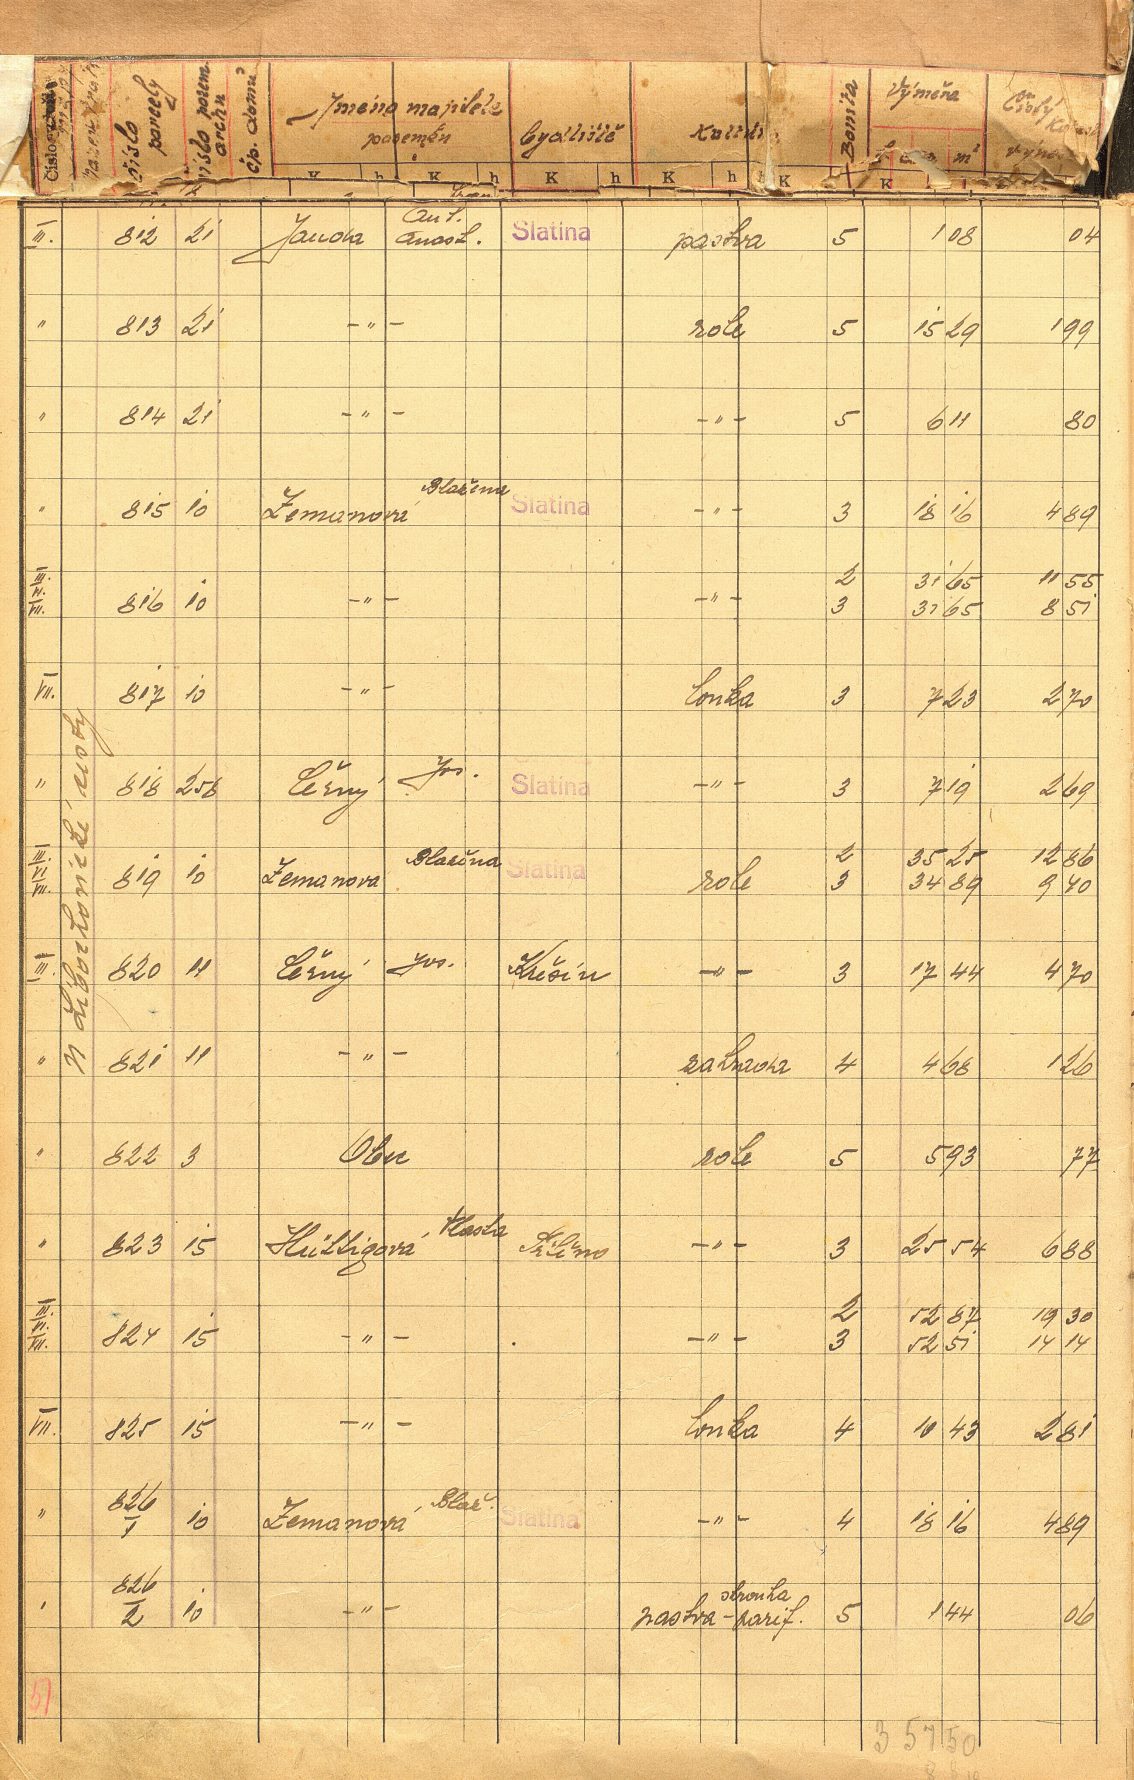 Číslo mapy
číslo parcely
číslo pozem. archu
čp. domu
Jména majitele pozemku
bydliště
Kultura
Bonita
Výměra
m²
Čistý
K h K h K h K h K K
III. 812 21 Janda Ant. Anast. Slatina pastva 5 1 08 04
" 813 21 -"- role 5 15 29 1 99
" 814 21 -"- -"- 5 6 11 80
" 815 10 Zemanová Blažena Slatina -"- 3 18 16 4 89
III. VI. VII. 816 10 -"- -"- 2 31 65 11 55
3 31 65 8 51
VII. 817 10 -"- louka 3 7 23 2 70
" 818 258 Černý Jos. Slatina -"- 3 7 19 2 69
III. VI. VII. 819 10 Zemanova Blažena Slatina role 2 35 25 12 86
3 34 89 9 40
III. 820 11 Černý Jos. Křešín -"- 3 17 44 4 70
" 821 11 -"- zahrada 4 4 68 1 26
" 822 3 Obec role 5 5 93 77
" 823 15 Hüttigová Vlasta -"- 3 25 54 6 88
III. VI. VII. 824 15 -"- -"- 2 52 87 19 30
3 52 51 14 14
VII. 825 15 -"- louka 4 10 43 2 81
" 826/1 10 Zemanová Blaž. Slatina -"- 4 18 16 4 89
" 826/2 10 -"- pastva - parif. 5 1 44 06
51
3 57 50